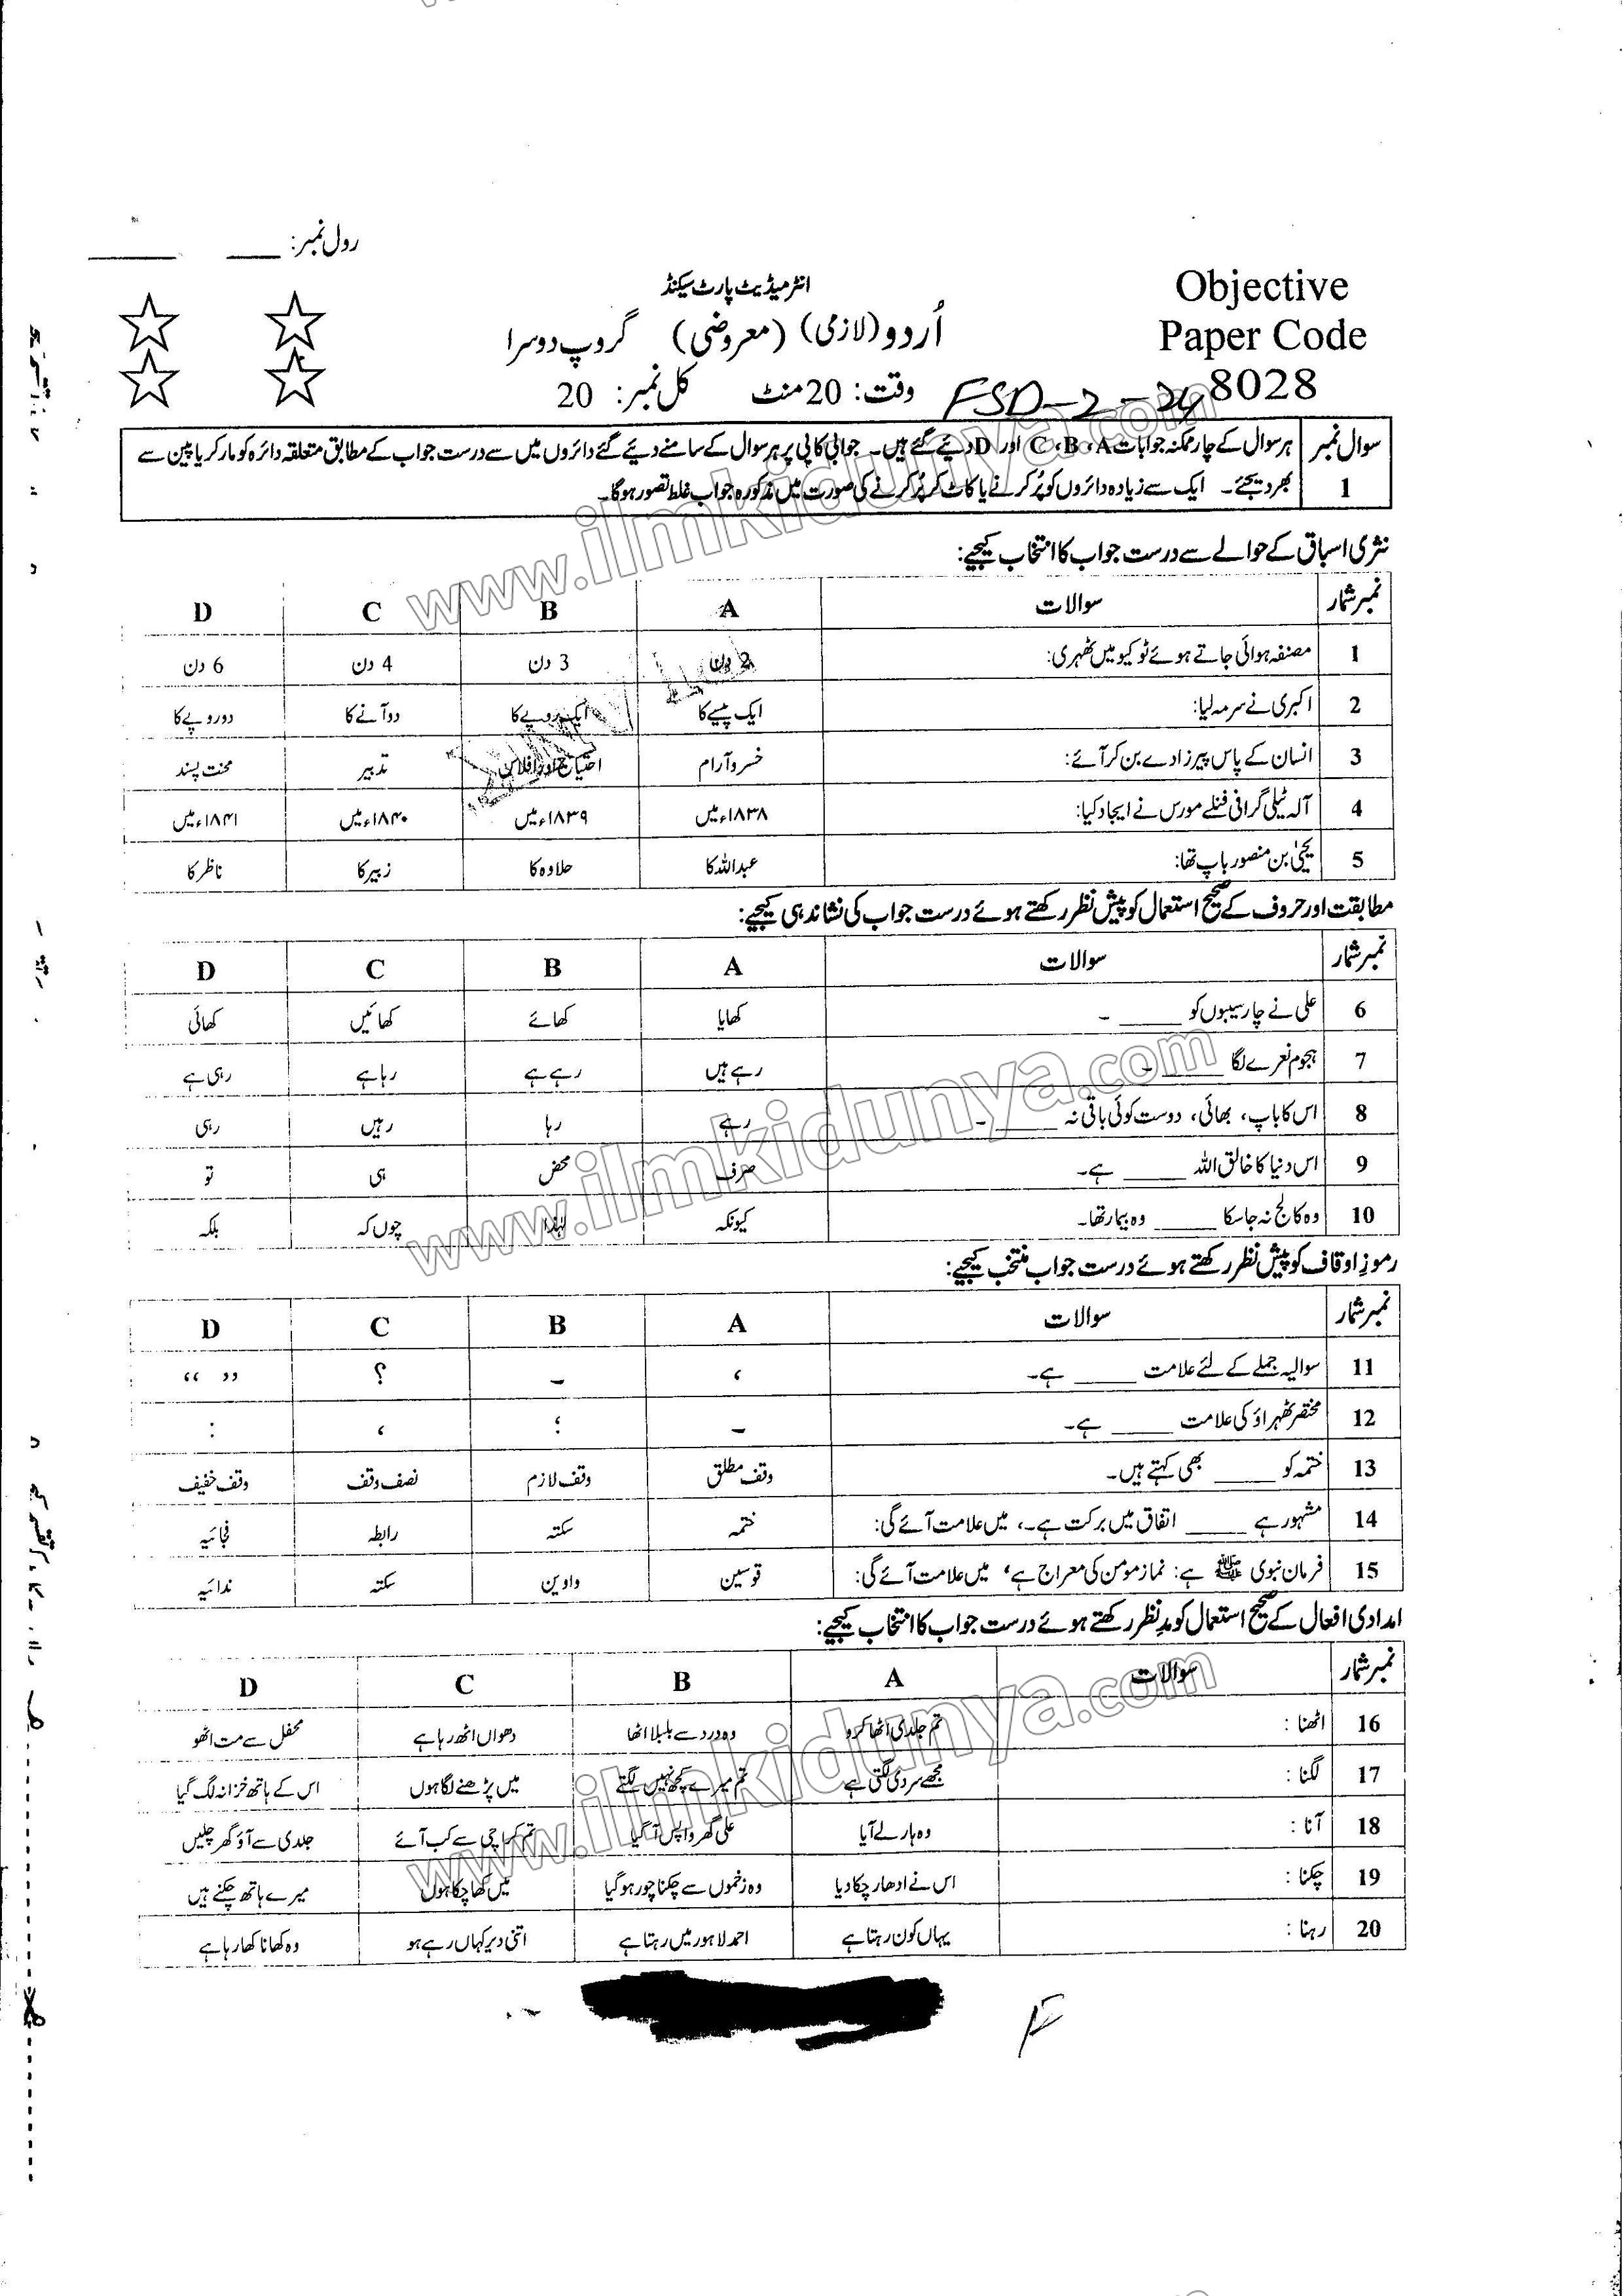 رول نمبر: ___ ______
انٹرمیڈیٹ پارٹ سیکنڈ
Objective
Paper Code
8028
اُردو (لازمی) (معروضی) گروپ دوسرا
وقت: 20 منٹ کل نمبر: 20
FSD-2-24
سوال نمبر 1
ہر سوال کے چار ممکنہ جوابات A، B، C اور D دیئے گئے ہیں۔ جوابی کاپی پر ہر سوال کے سامنے دیے گئے دائروں میں سے درست جواب کے مطابق متعلقہ دائرہ کو مارکر یا پین سے
بھر دیجئے۔ ایک سے زیادہ دائروں کو پُر کرنے یا کاٹ کر پُر کرنے کی صورت میں مذکورہ جواب غلط تصور ہوگا۔
نثری اسباق کے حوالے سے درست جواب کا انتخاب کیجیے:
نمبر شمار سوالات A B C D
1 مصنفہ ہوائی جاتے ہوئے ٹوکیو میں ٹھہری: 2 دن 3 دن 4 دن 6 دن
2 اکبری نے سرمہ لیا: ایک پیسے کا ایک روپے کا دو آنے کا دو روپے کا
3 انسان کے پاس پیرزادے بن کر آئے: خسرو آرام احتیاج اور افلاس تدبیر محنت پسند
4 آلہ ٹیلی گرافی فنلے مورس نے ایجاد کیا: ۱۸۳۸ء میں ۱۸۳۹ء میں ۱۸۴۰ء میں ۱۸۴۱ء میں
5 یحییٰ بن منصور باپ تھا: عبداللہ کا حلاوہ کا زبیر کا ناظر کا
مطابقت اور حروف کے صحیح استعمال کو پیش نظر رکھتے ہوئے درست جواب کی نشاندہی کیجیے:
نمبر شمار سوالات A B C D
6 علی نے چار سیبوں کو _____ ۔ کھایا کھائے کھائیں کھائی
7 ہجوم نعرے لگا _____ ۔ رہے ہیں رہے ہے رہا ہے رہی ہے
8 اس کا باپ، بھائی، دوست کوئی باقی نہ _____ ۔ رہے رہا رہیں رہی
9 اس دنیا کا خالق اللہ _____ ہے۔ صرف محض ہی تو
10 وہ کالج نہ جا سکا _____ وہ بیمار تھا۔ کیونکہ لہٰذا چوں کہ بلکہ
رموزِ اوقاف کو پیش نظر رکھتے ہوئے درست جواب منتخب کیجیے:
نمبر شمار سوالات A B C D
11 سوالیہ جملے کے لئے علامت _____ ہے۔ ، ۔ ؟ ” “
12 مختصر ٹھہراؤ کی علامت _____ ہے۔ ۔ ؛ ، :
13 ختمہ کو _____ بھی کہتے ہیں۔ وقف مطلق وقف لازم نصف وقف وقف خفیف
14 مشہور ہے _____ اتفاق میں برکت ہے۔، میں علامت آئے گی: ختمہ سکتہ رابطہ فجائیہ
15 فرمان نبوی ﷺ ہے: نماز مومن کی معراج ہے، میں علامت آئے گی: قوسین واوین سکتہ ندائیہ
امدادی افعال کے صحیح استعمال کو مدنظر رکھتے ہوئے درست جواب کا انتخاب کیجیے:
نمبر شمار سوالات A B C D
16 اٹھنا : تم جلدی اٹھا کرو وہ درد سے بلبلا اٹھا دھواں اٹھ رہا ہے محفل سے مت اٹھو
17 لگنا : مجھے سردی لگتی ہے تم میرے کچھ نہیں لگتے میں پڑھنے لگا ہوں اس کے ہاتھ خزانہ لگ گیا
18 آنا : وہ ہار لے آیا علی گھر واپس آ گیا تم کراچی سے کب آئے جلدی سے آؤ گھر چلیں
19 چکنا : اس نے ادھار چکا دیا وہ زخموں سے چکنا چور ہو گیا میں کھا چکا ہوں میرے ہاتھ چکنے ہیں
20 رہنا : یہاں کون رہتا ہے احمد لاہور میں رہتا ہے اتنی دیر کہاں رہے ہو وہ کھانا کھا رہا ہے
www.ilmkidunya.com
www.ilmkidunya.com
www.ilmkidunya.com